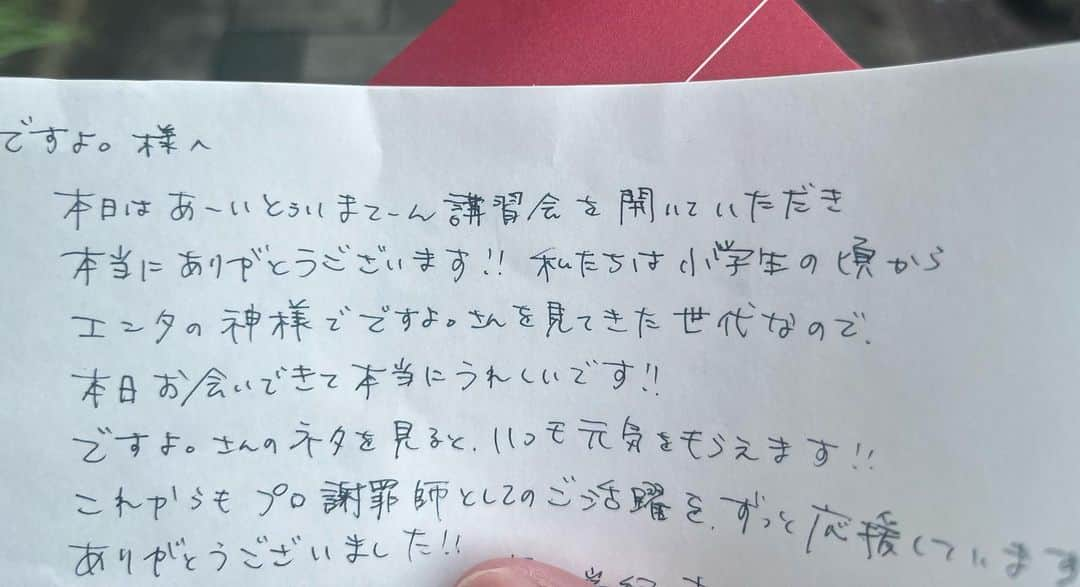 ですよ。様へ
本日はあ〜いとぅいまてーん講習会を開いていただき
本当にありがとうございます!! 私たちは小学生の頃から
エンタの神様でですよ。さんを見てきた世代なので、
本日お会いできて本当にうれしいです!!
ですよ。さんのネタを見ると、いつも元気をもらえます!!
これからもプロ謝罪師としてのご活躍を、ずっと応援しています
ありがとうございました!!